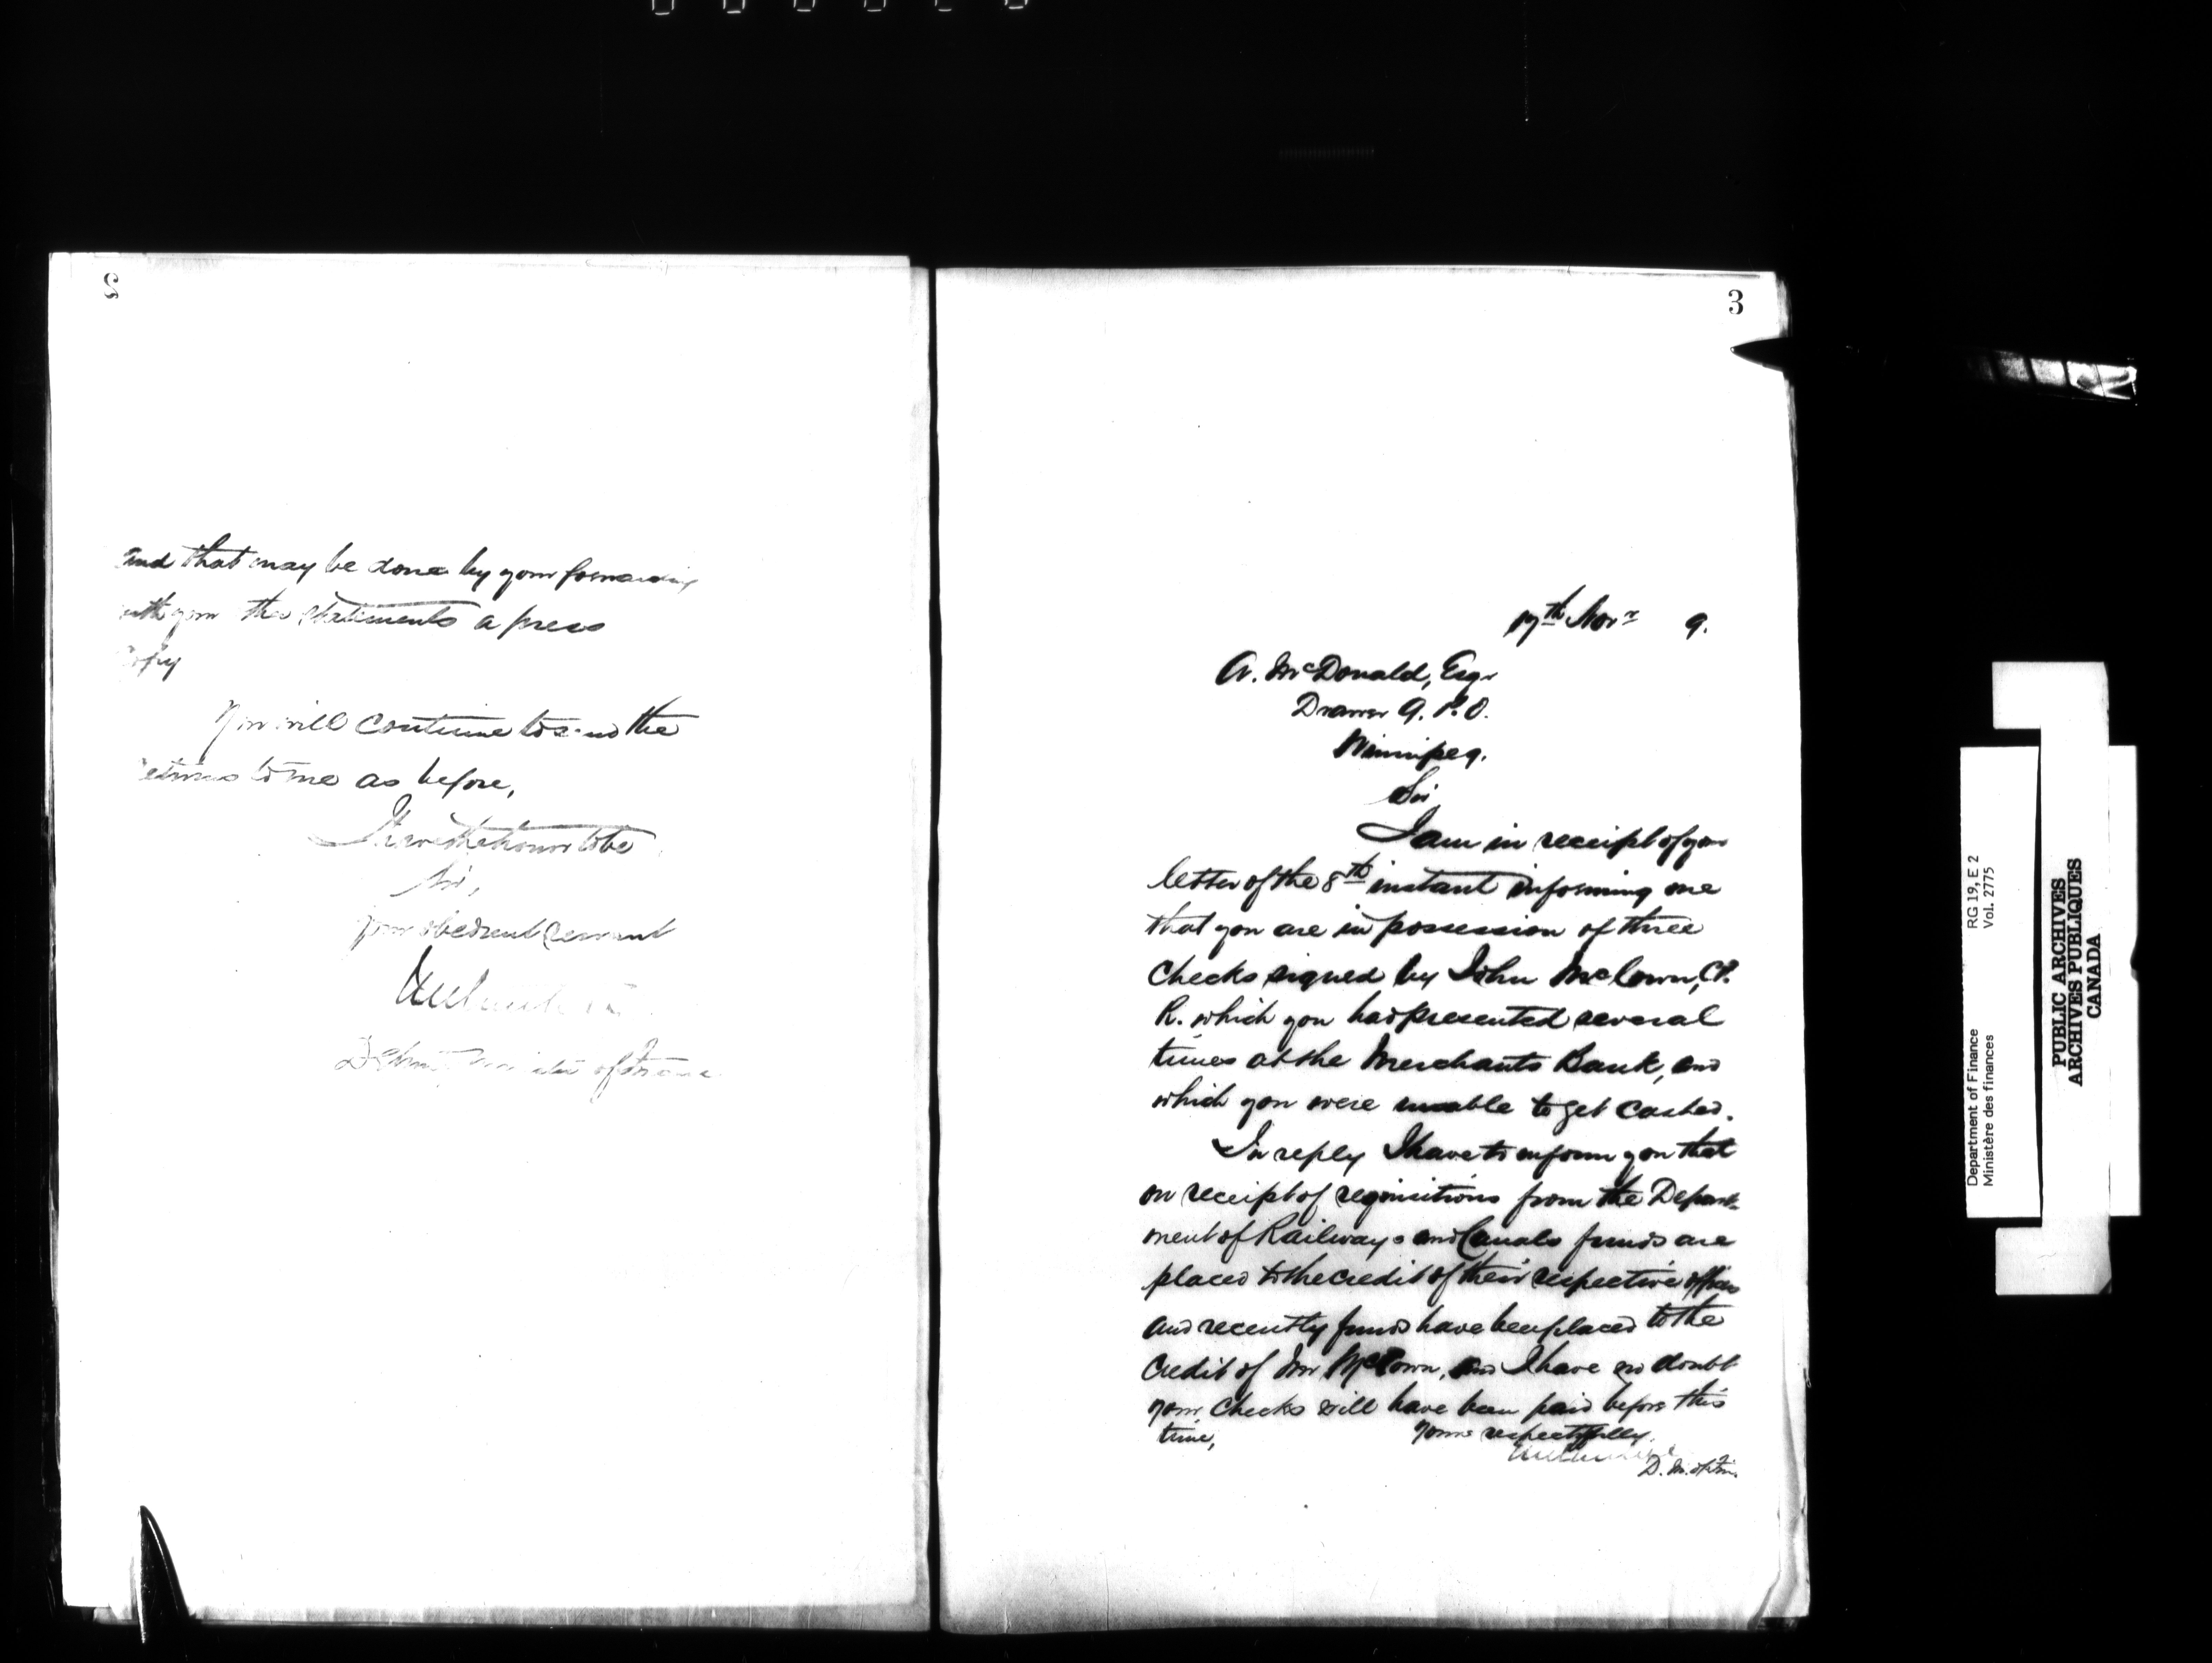 and that may be done by your forwarding
with your the statements a press
Copy
You will continue to send the
returns to me as before,
I have the honor to be
Sir,
Your obedient servant
Deputy Minister of Finance
3
17th Novr 9.
A. McDonald, Esqr
Drawer 9. P.O.
Winnipeg.
Sir
I am in receipt of your
letter of the 8th instant informing me
that you are in possession of three
Checks signed by John McCown, C.P.
R. which you had presented several
times at the Merchants Bank, and
which you were unable to get cashed.
In reply I have to inform you that
on receipt of requisitions from the Depart-
ment of Railways and Canals funds are
placed to the credit of their respective officers
and recently funds have been placed to the
Credit of Mr McCown, and I have no doubt
your Checks will have been paid before this
time,
Yours respectfully,
D. M. of Fin.
Department of Finance RG 19, E 2
Ministère des finances Vol. 2775
PUBLIC ARCHIVES
ARCHIVES PUBLIQUES
CANADA